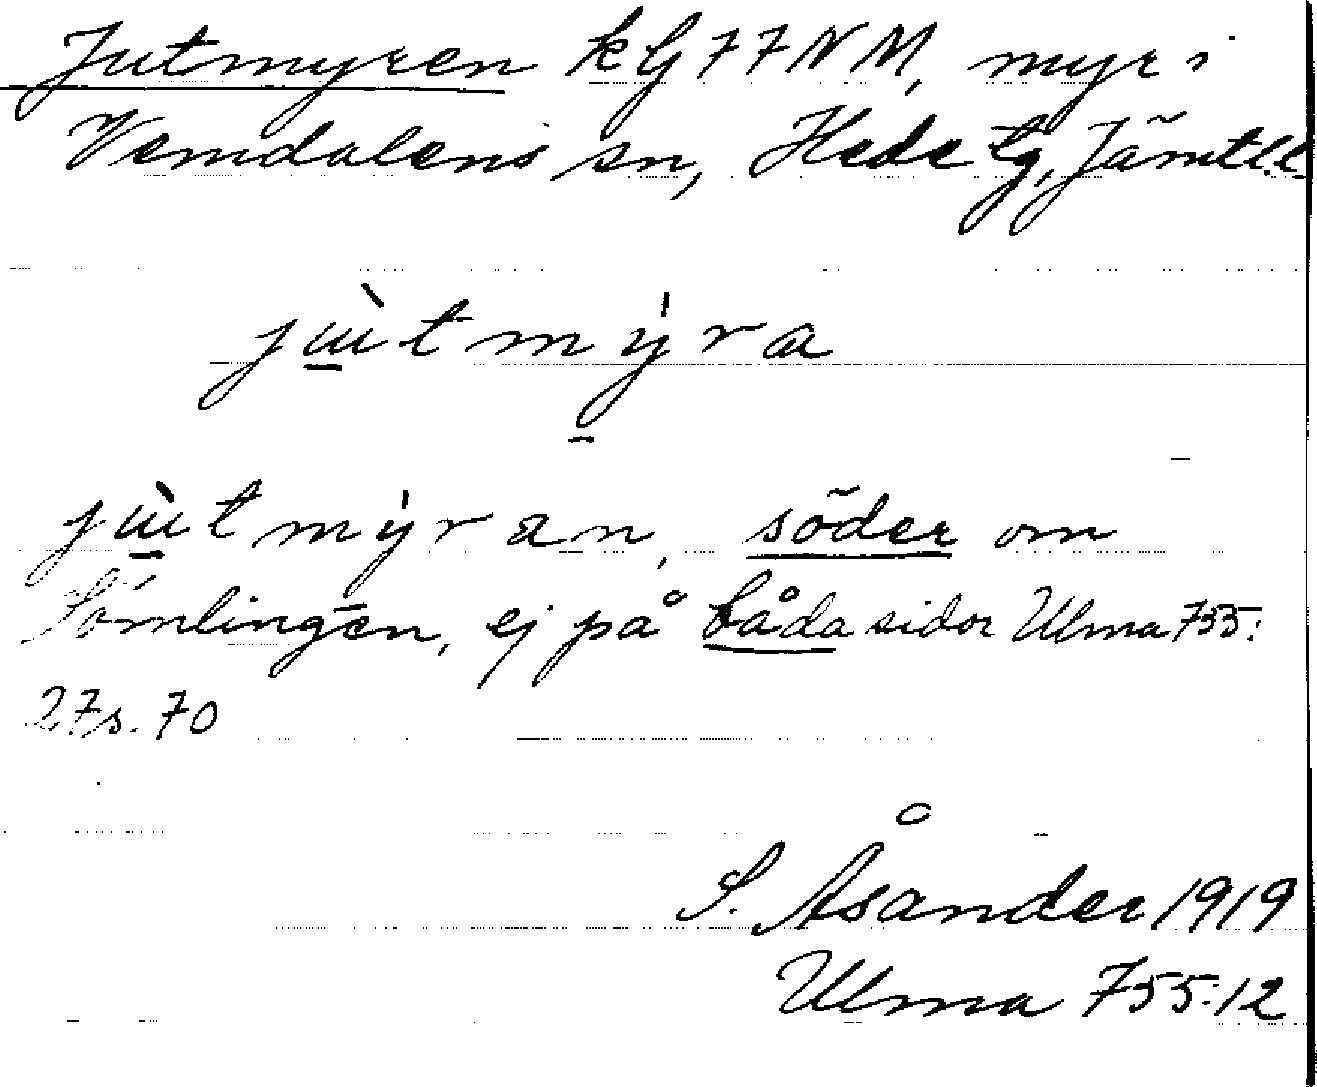 Jutmyren k G 77NM, myr i
Vemdalens sn, Hede tg, Jämtl.l.
jɯ̀tmýra
jɯ̀tmýran, söder om
Sömlingen, ej på båda sidor Ulma 755:
27 s. 70
S. Åsander 1919
Ulma 755:12